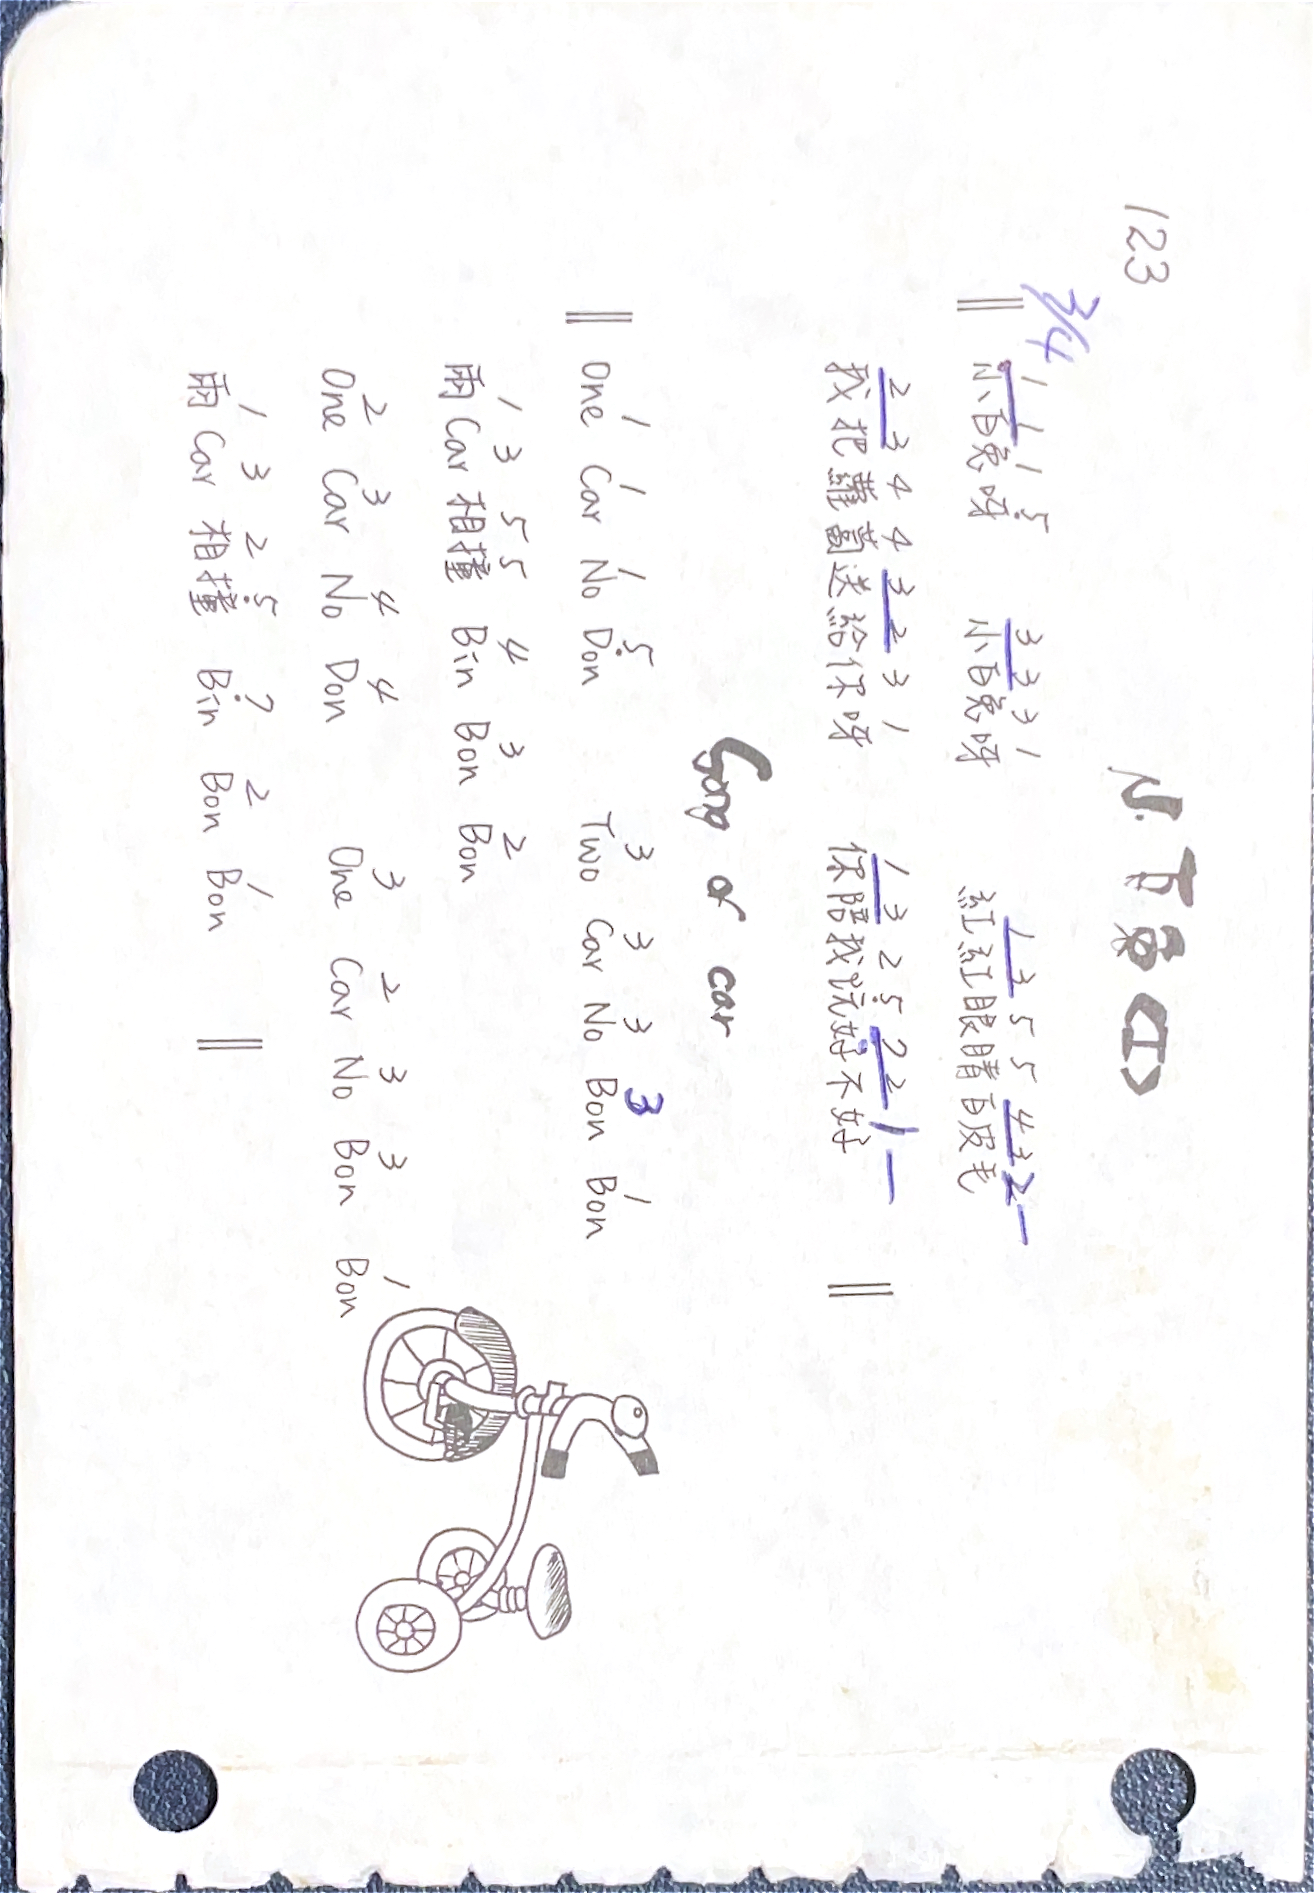 123
小白兔<I>
3/4
1 1 1 5̣ 3 3 3 1 1 3 5 5 4 3 2 —
‖ 小白兔呀 小白兔呀 紅紅眼睛白皮毛
2 3 4 4 3 2 3 1 1 3 2 5̣ 7̣ 2 1 —
我把蘿蔔送給你呀 你陪我玩好不好 ‖
Song of car
1 1 1 5̣ 3 3 3 3 1
‖ One Car No Don Two Car No Bon Bon
1 3 5 5 4 3 2
兩 Car 相撞 Bin Bon Bon
2 3 4 4 3 2 3 3 1
One Car No Don One Car No Bon Bon
1 3 2 5̣ 7̣ 2 1
兩 Car 相撞 Bin Bon Bon ‖